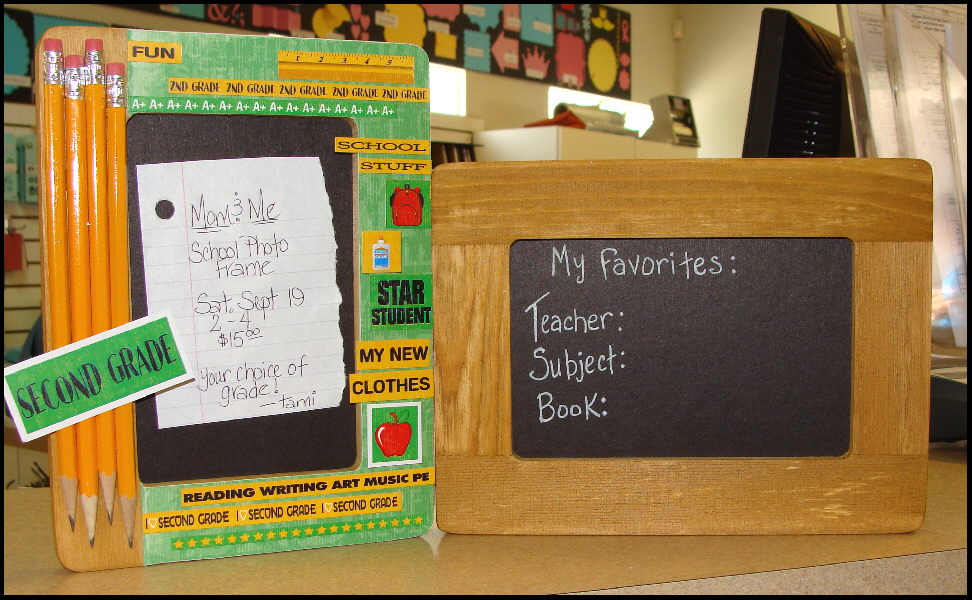 FUN
1 2 3 4 5
2ND GRADE 2ND GRADE 2ND GRADE 2ND GRADE 2ND GRADE
A+ A+ A+ A+ A+ A+ A+ A+ A+ A+ A+ A+ A+ A+ A+
SCHOOL
STUFF
Mom & Me
School Photo
Frame
Sat. Sept 19
2-4
$15.00
your choice of
grade!
-tami
GLUE
STAR
STUDENT
MY NEW
CLOTHES
SECOND GRADE
READING WRITING ART MUSIC PE
I SECOND GRADE I SECOND GRADE I SECOND GRADE
My Favorites:
Teacher:
Subject:
Book: